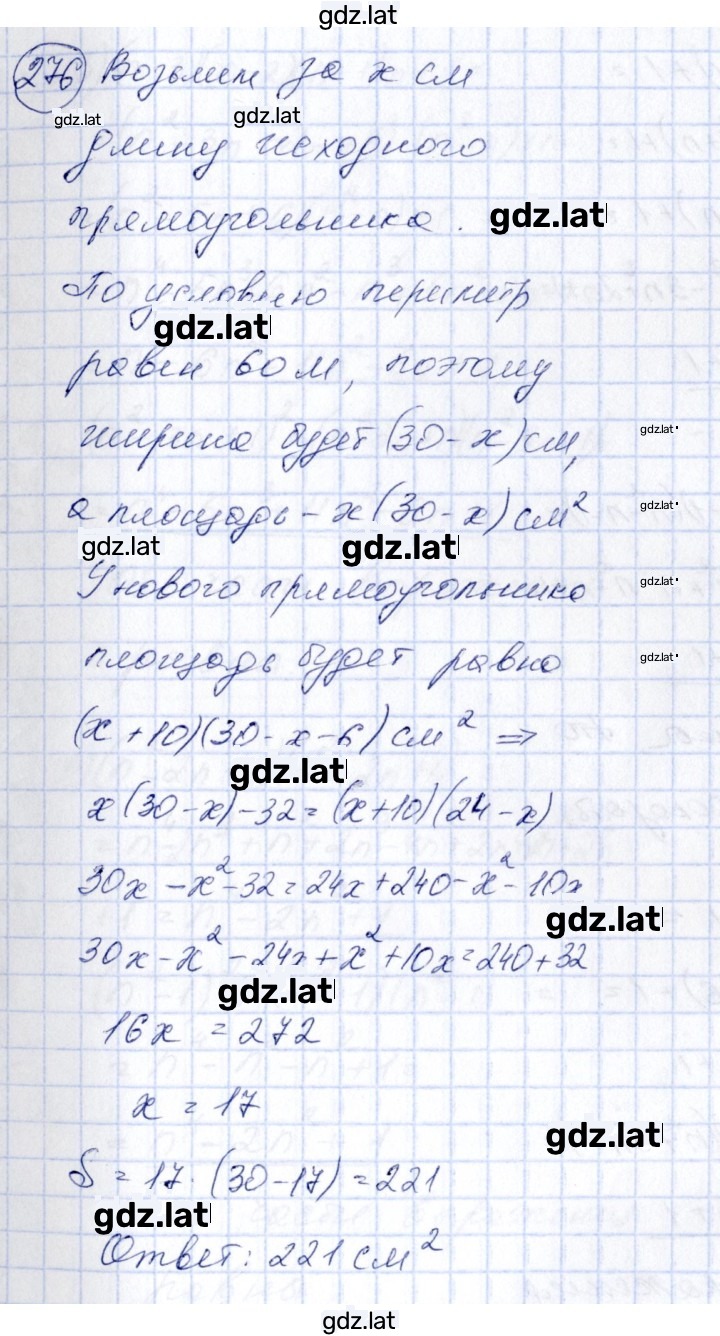 gdz.lat
276 Возьмем за x см
gdz.lat
gdz.lat
длину исходного
прямоугольника. gdz.lat
По условию периметр
gdz.lat
равен 60 м, поэтому
ширина будет (30 - x) см, gdz.lat
а площадь - x(30 - x) см² gdz.lat
gdz.lat gdz.lat
У нового прямоугольника gdz.lat
площадь будет равна gdz.lat
(x + 10)(30 - x - 6) см² ⇒
gdz.lat
x(30 - x) - 32 = (x + 10)(24 - x)
30x - x² - 32 = 24x + 240 - x² - 10x
gdz.lat
30x - x² - 24x + x² + 10x = 240 + 32
gdz.lat
16x = 272
x = 17
gdz.lat
S = 17 · (30 - 17) = 221
gdz.lat
Ответ: 221 см²
gdz.lat